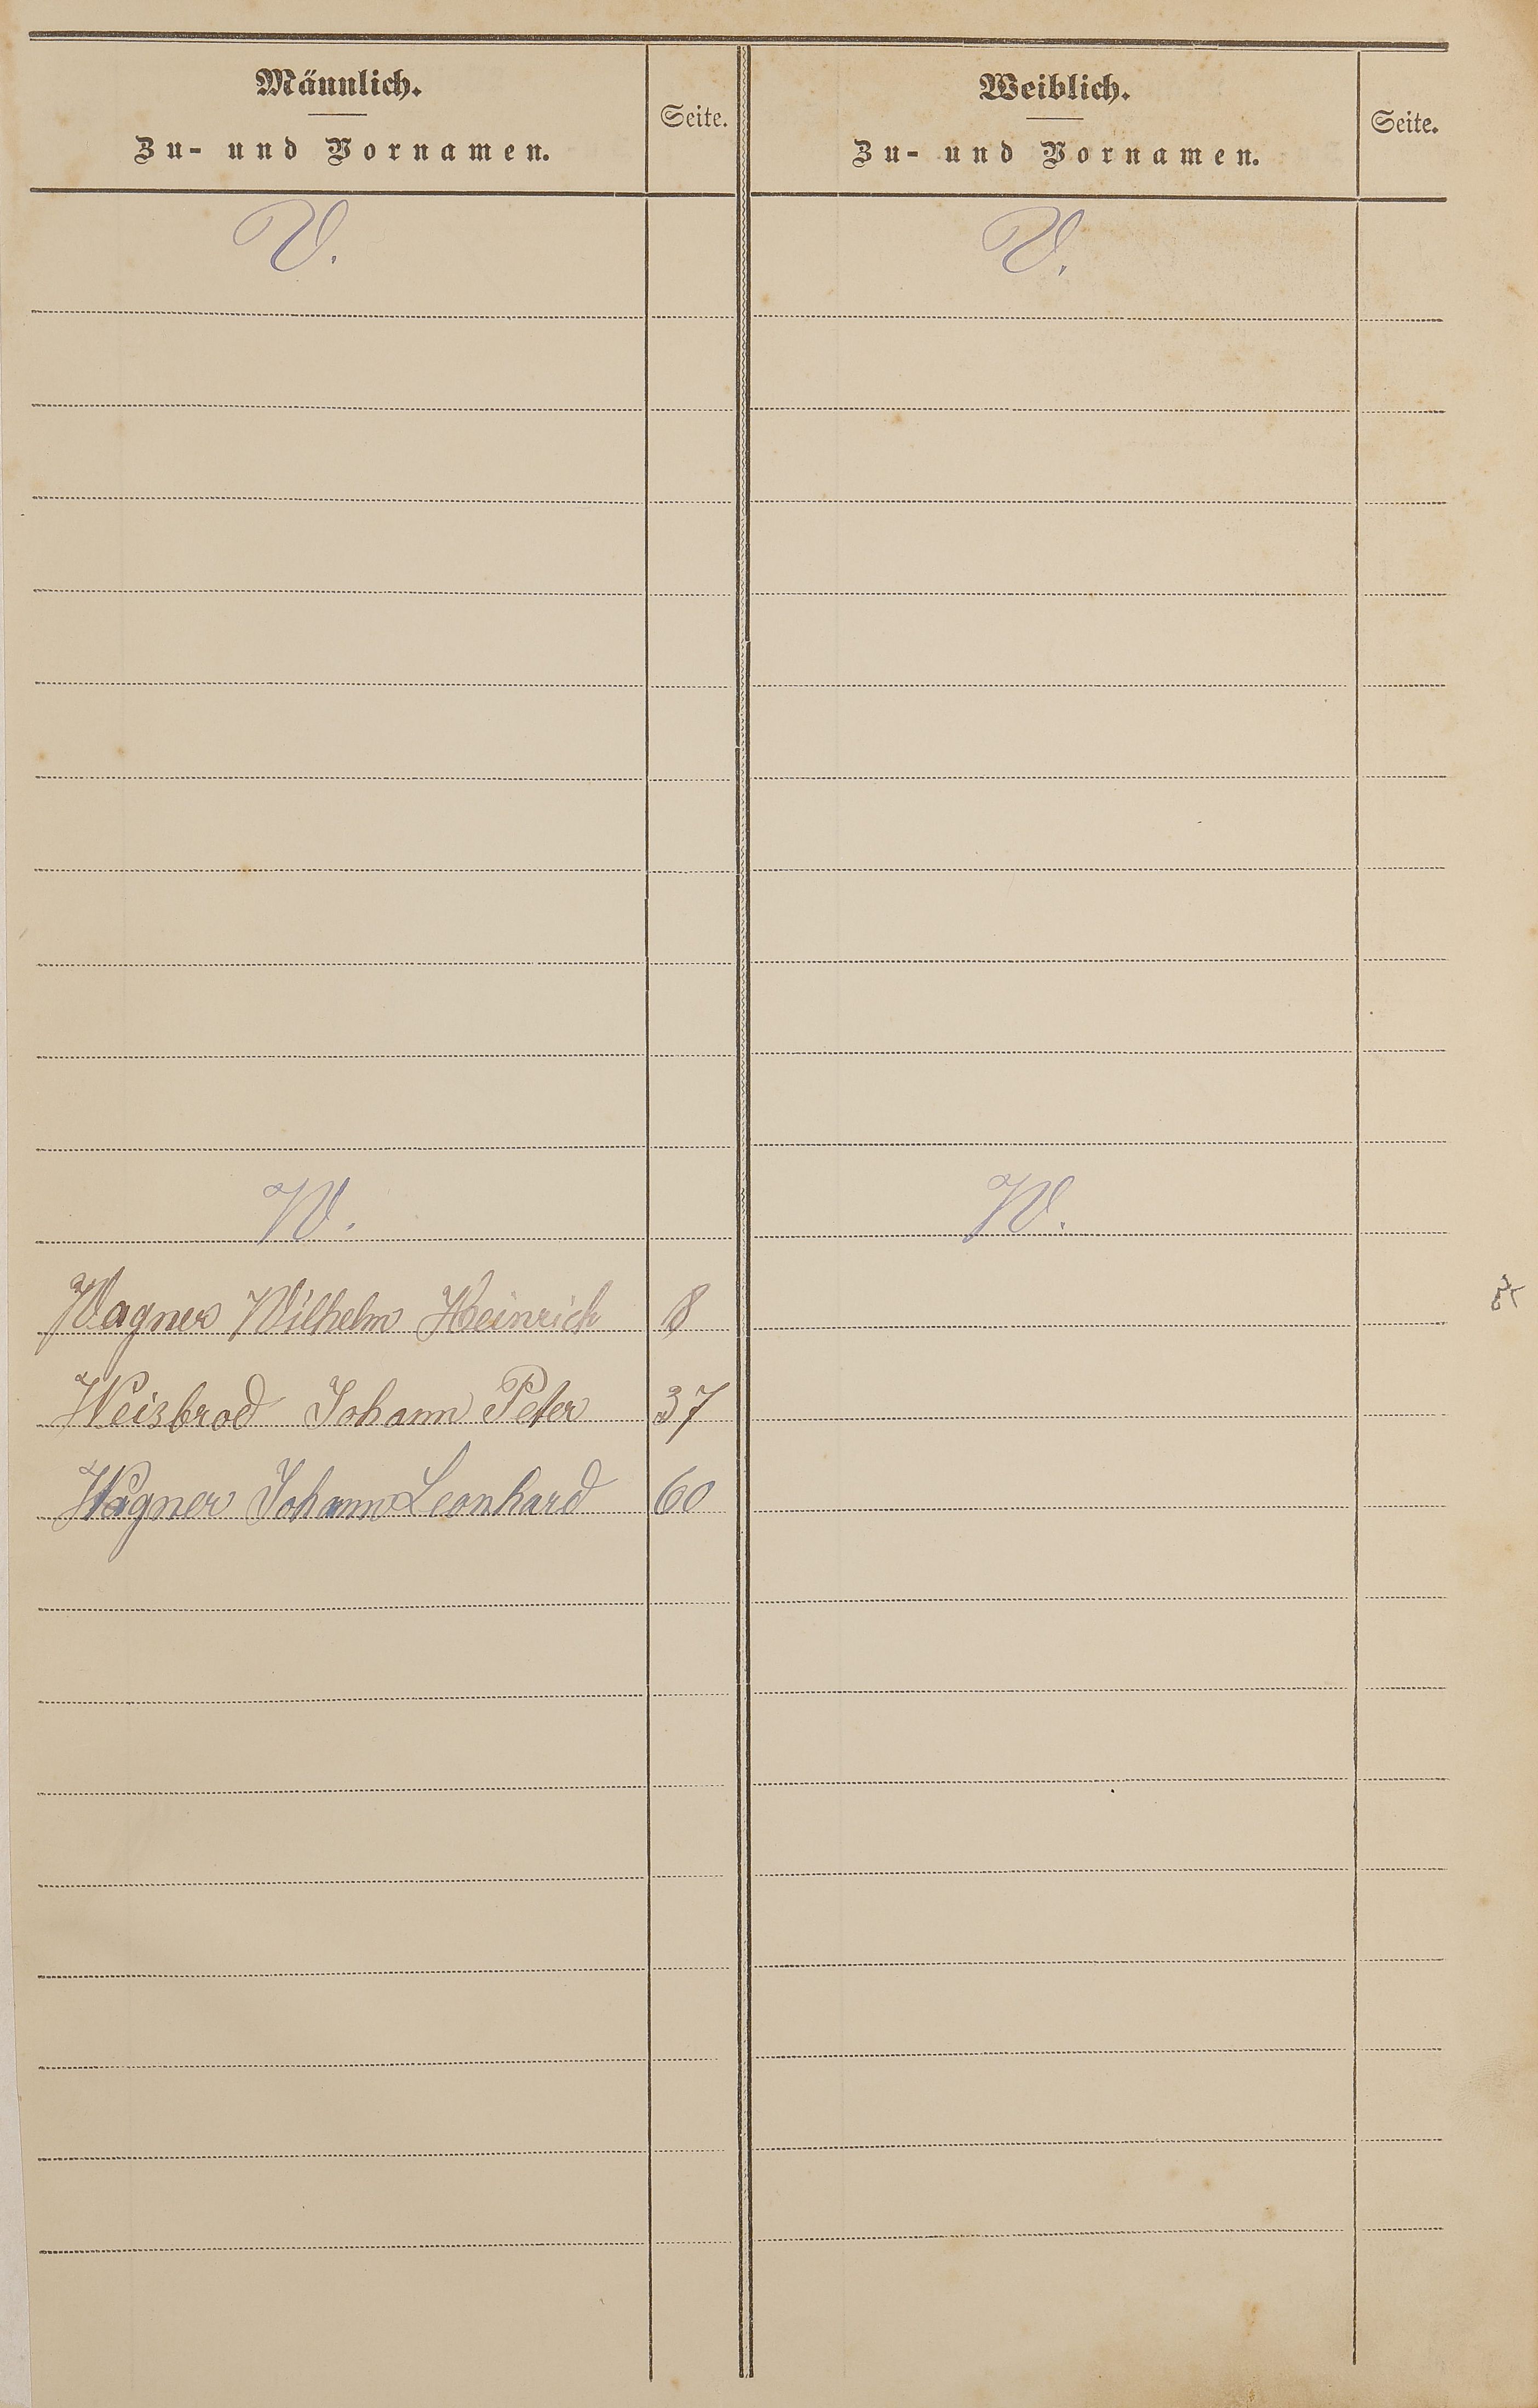 Männlich.
Zu- und Vornamen.
Seite.
Weiblich.
Zu- und Vornamen.
Seite.
V.
V.
W.
W.
Wagner Wilhelm Heinrich 8
Weisbrod Johann Peter 37
Wagner Johann Leonhard 60